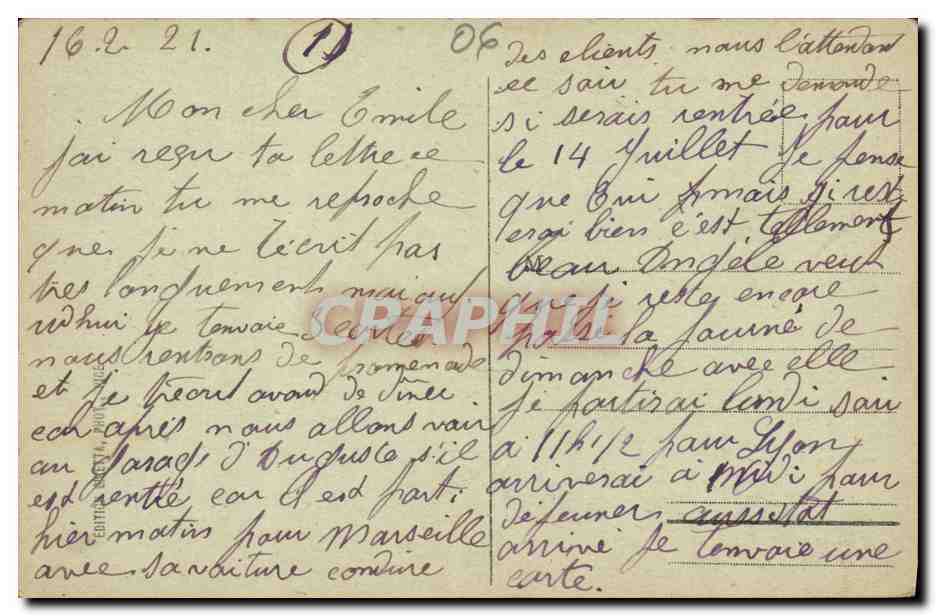 16.2.21. 1) 06
Mon cher Emile
j'ai reçu ta lettre ce
matin tu me reproche
que je ne t'écrit pas
très longuement mai auj
rdhui je t'envoie
nous rentrons de promenade
et je t'écrit avand de diner
car après nous allons voir
au Garage d'Auguste s'il
est rentré car il est parti
hier matin pour Marseille
avec sa voiture conduire
des clients nous l'attendon
ce soir tu me demande
si serais rentrée pour
le 14 Juillet Je pense
que Oui mais si rest
erai bien c'est tellement
beau Angéle veut
que je reste encore
passé la journé de
dimanche avec elle
Je partirai lundi soir
a 11h 1/2 pour Lyon
arriverai a Midi pour
déjeuner aussitot
arrivé Je t'envoie une
carte.
CRAPHIL
EDITION GILETTA, PHOT., NICE